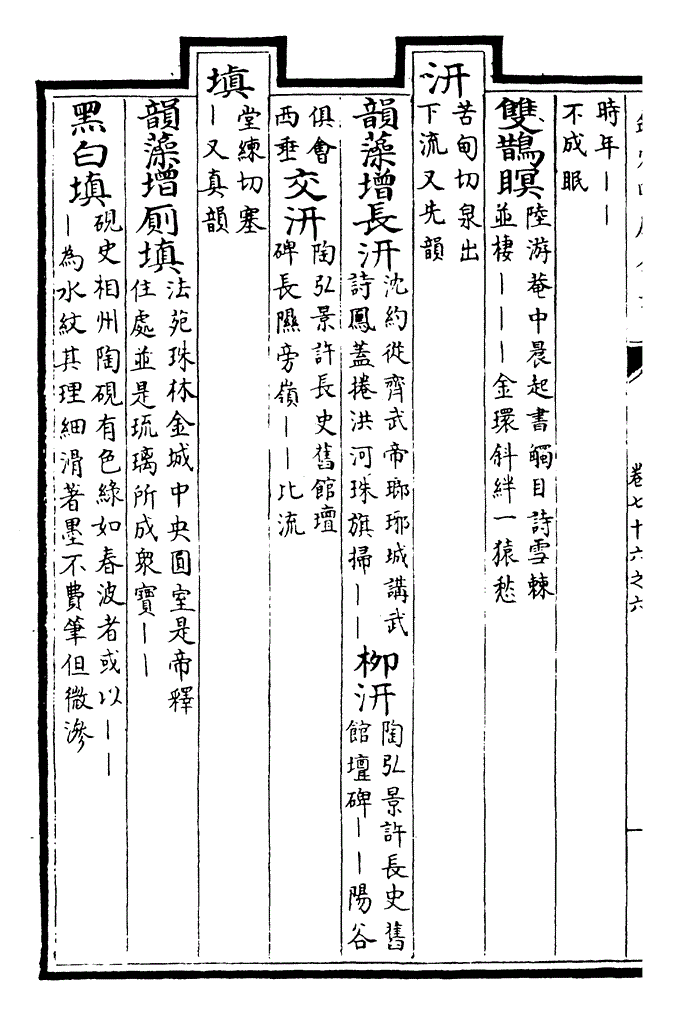 卷七十六之六
時年丨丨
不成眠
雙鵲瞑
陸游菴中晨起書觸目詩雪棘
並棲丨丨丨金環斜絆一猿愁
汧
苦甸切泉出
下流又先韻
韻藻增長汧
沈約從齊武帝瑯琊城講武
詩鳳蓋捲洪河珠旗掃丨丨
柳汧
陶弘景許長史舊
館壇碑丨丨陽谷
俱會
西垂
交汧
陶弘景許長史舊館壇
碑長隰旁嶺丨丨比流
填
堂練切塞
丨又真韻
韻藻增厠填
法苑珠林金城中央圓室是帝釋
住處並是琉璃所成衆寶丨丨
黑白填
硯史相州陶硯有色綠如春波者或以丨丨
丨為水紋其理細滑著墨不費筆但微滲